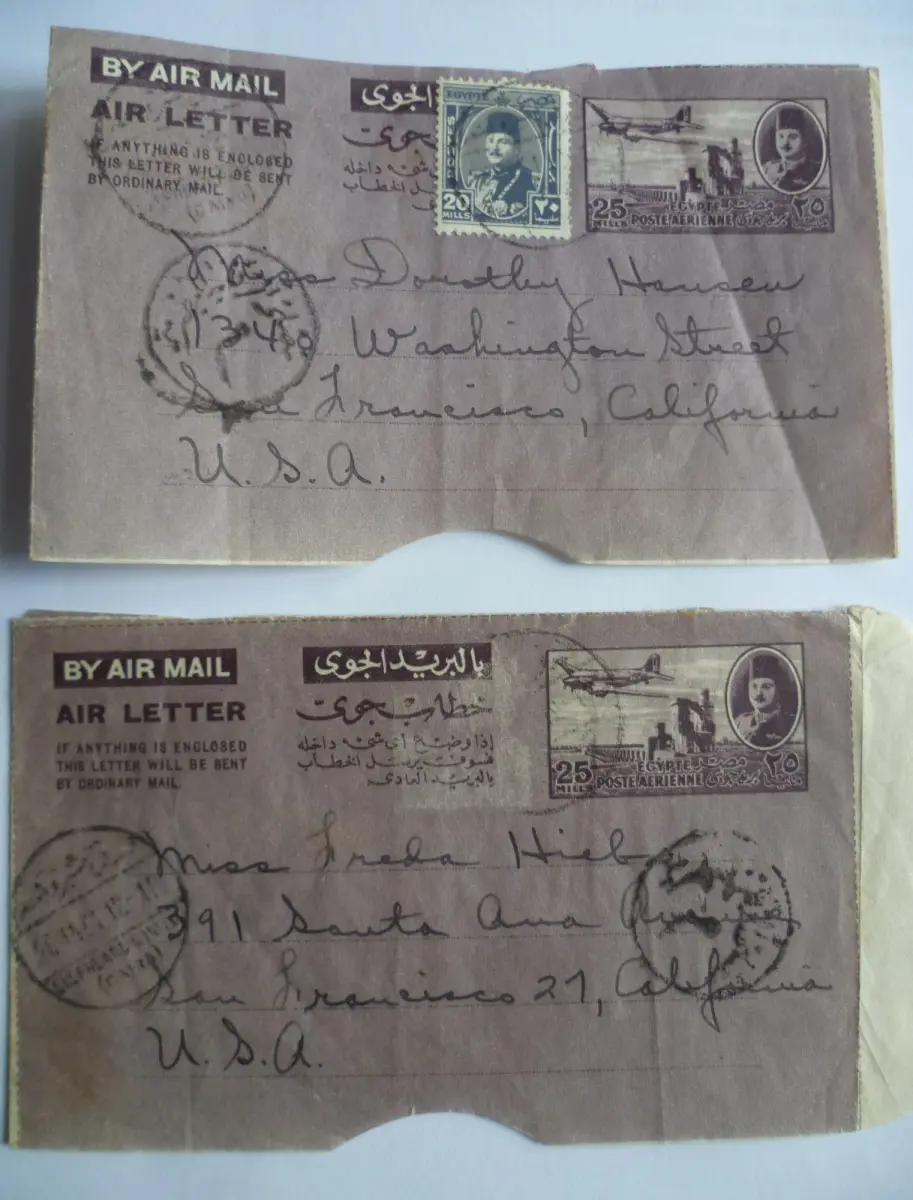 BY AIR MAIL
AIR LETTER
IF ANYTHING IS ENCLOSED
THIS LETTER WILL BE SENT
BY ORDINARY MAIL.
(CAIRO)
الجوى
EGYPTE
20
MILLS
٢٠
25
MILLS
EGYPTE مصر
POSTE AERIENNE بريد جوى
٢٥
Miss Dorothy Hansen
1340 Washington Street
San Francisco, California
U.S.A.
BY AIR MAIL
AIR LETTER
IF ANYTHING IS ENCLOSED
THIS LETTER WILL BE SENT
BY ORDINARY MAIL.
بالبريد الجوى
خطاب جوى
إذا وضع أى شئ داخله
فسوف يرسل الخطاب
بالبريد العادى
25
MILLS
EGYPTE مصر
POSTE AERIENNE بريد جوى
٢٥
Miss Freda Hieb
391 Santa Ana Avenue
San Francisco 27, California
U.S.A.
(CAIRO)